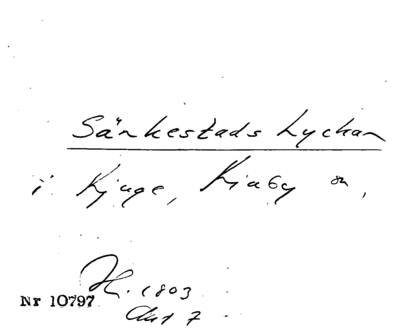 Särkestads Lyckan
i Kjuge, Kiaby sn,
H. 1803
Akt 7
Nr 10797